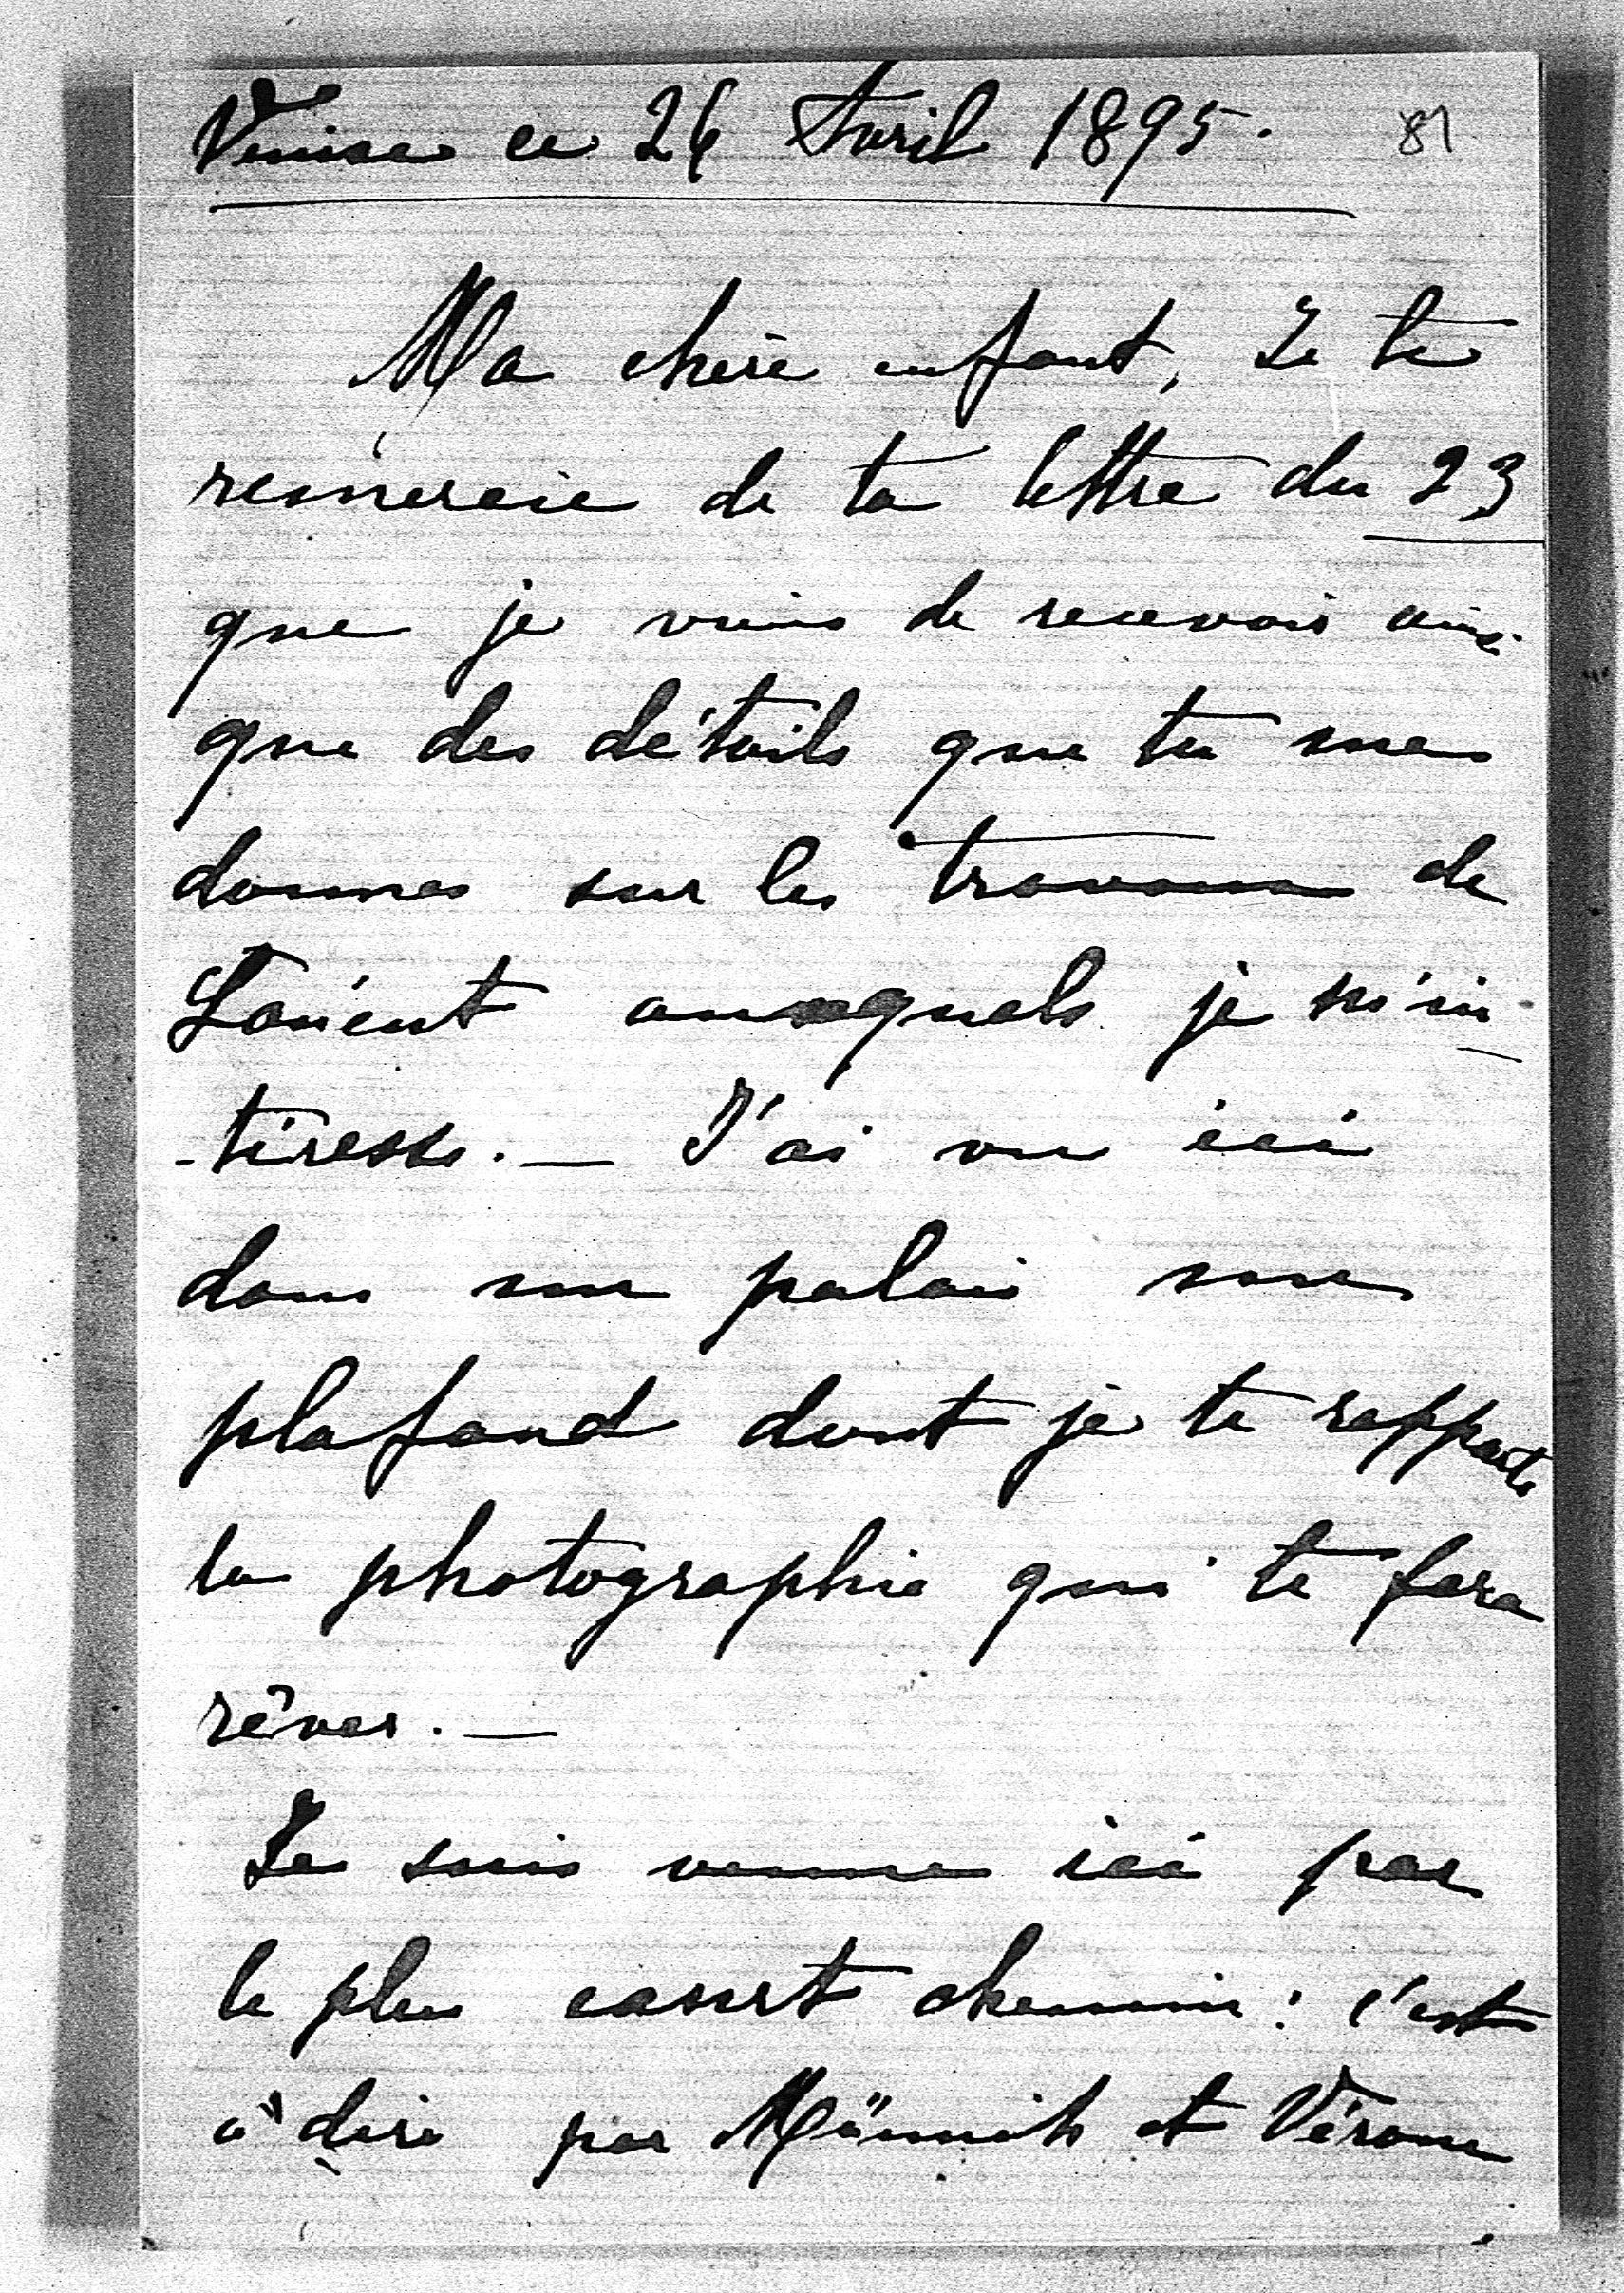 Venise ce 26 Avril 1895.
81
Ma chère enfant, Je te
remercie de ta lettre du 23
que je viens de recevoir ainsi
que des détails que tu me
donnes sur les travaux de
auxquels je m'in
-téresse. — J'ai vu ici
dans un palais un
plafond dont je te rapporte
la photographie qui te fera
rêver. —
Je suis venue ici par
le plus court chemin : c'est
à dire par Münich et Vérone